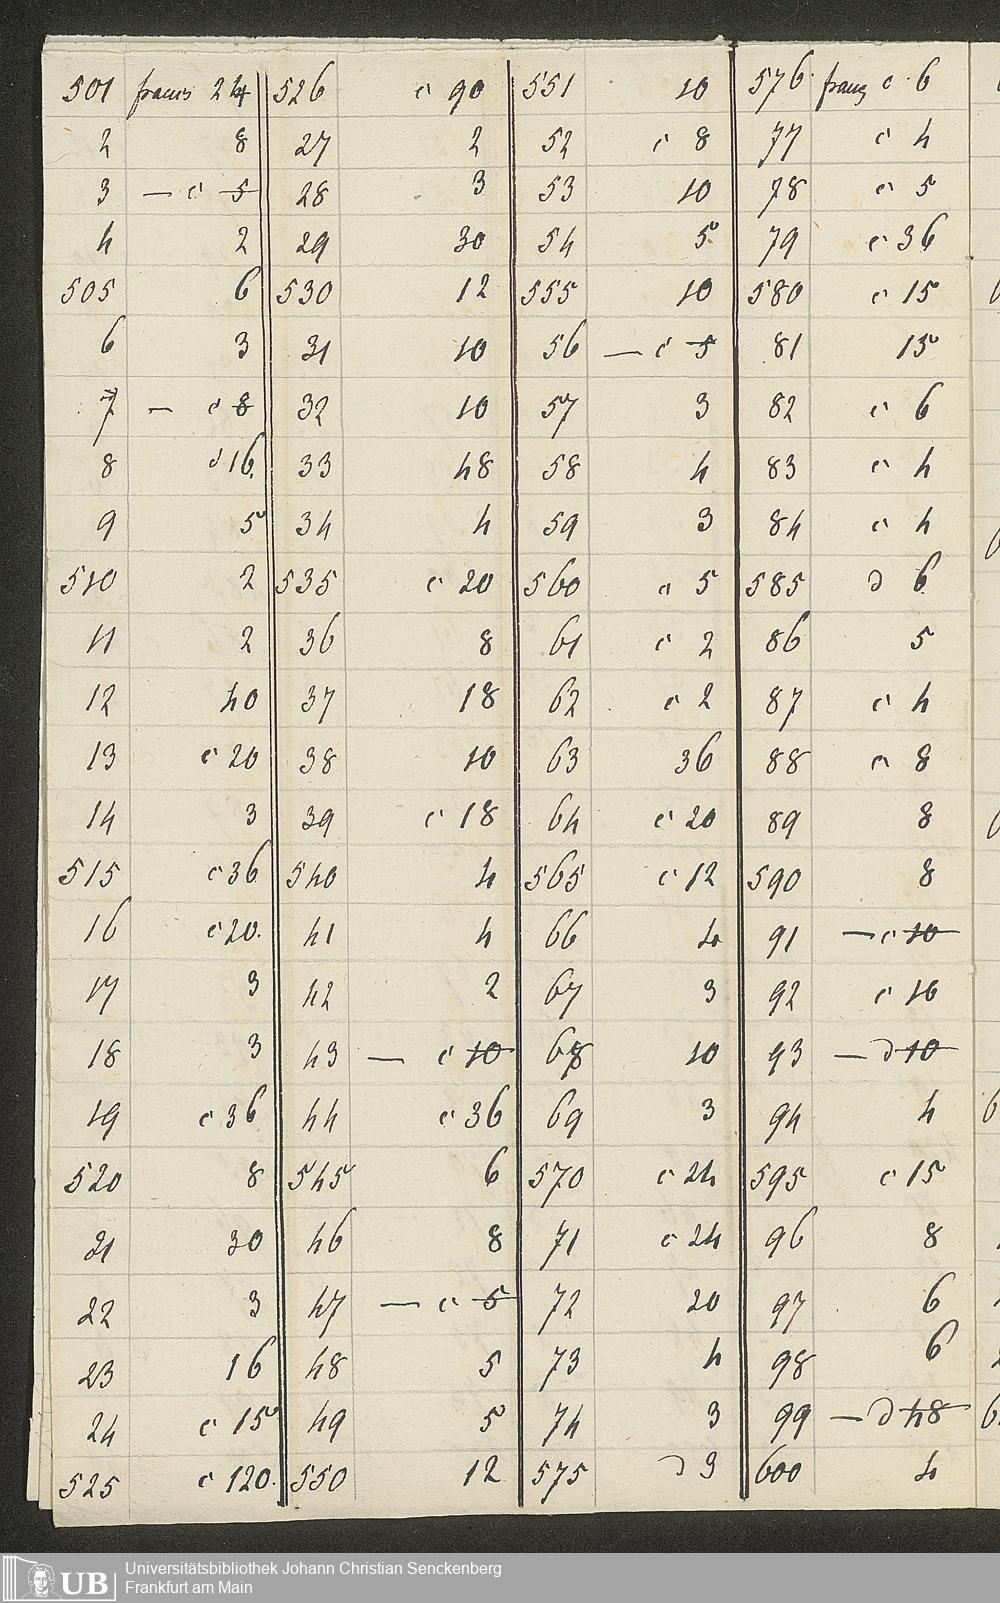 501 francs 24 526 c 90 551 10 576 franz c 6
2 8 27 2 52 c 8 77 c 4
3 — c 5 28 3 53 10 78 c 5
4 2 29 30 54 5 79 c 36
505 6 530 12 555 10 580 c 15
6 3 31 10 56 — c 5 81 15
7 — c 8 32 10 57 3 82 c 6
8 d 16. 33 48 58 4 83 c 4
9 5 34 4 59 3 84 c 4
510 2 535 c 20 560 c 5 585 d 6
11 2 36 8 61 c 2 86 5
12 40 37 18 62 c 2 87 c 4
13 c 20 38 10 63 36 88 c 8
14 3 39 c 18 64 c 20 89 8
515 c 36 540 4 565 c 12 590 8
16 c 20. 41 4 66 4 91 — c 10
17 3 42 2 67 3 92 c 10
18 3 43 — c 10 68 10 93 — d 10
19 c 36 44 c 36 69 3 94 4
520 8 545 6 570 c 24 595 c 15
21 30 46 8 71 c 24 96 8
22 3 47 — c 5 72 20 97 6
23 16 48 5 73 4 98 6
24 c 15 49 5 74 3 99 — d 48
525 c 120. 550 12 575 d 3 600 4
UB Universitätsbibliothek Johann Christian Senckenberg
Frankfurt am Main